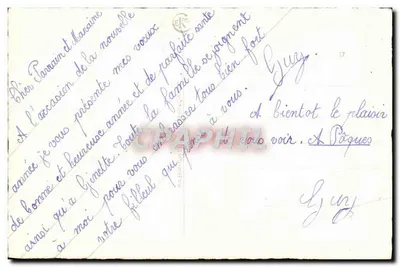 Cher Parrain et Marraine
A l'occasion de la nouvelle
année je vous présente mes voeux
de bonne et heureuse année et de parfaite santé
ainsi qu'a Ginette toute la famille se joignent
à moi pour vous embrasser tous bien fort
votre filleul qui pense a vous.
Guy.
A bientot le plaisir
de vous voir. A Pâques
Guy